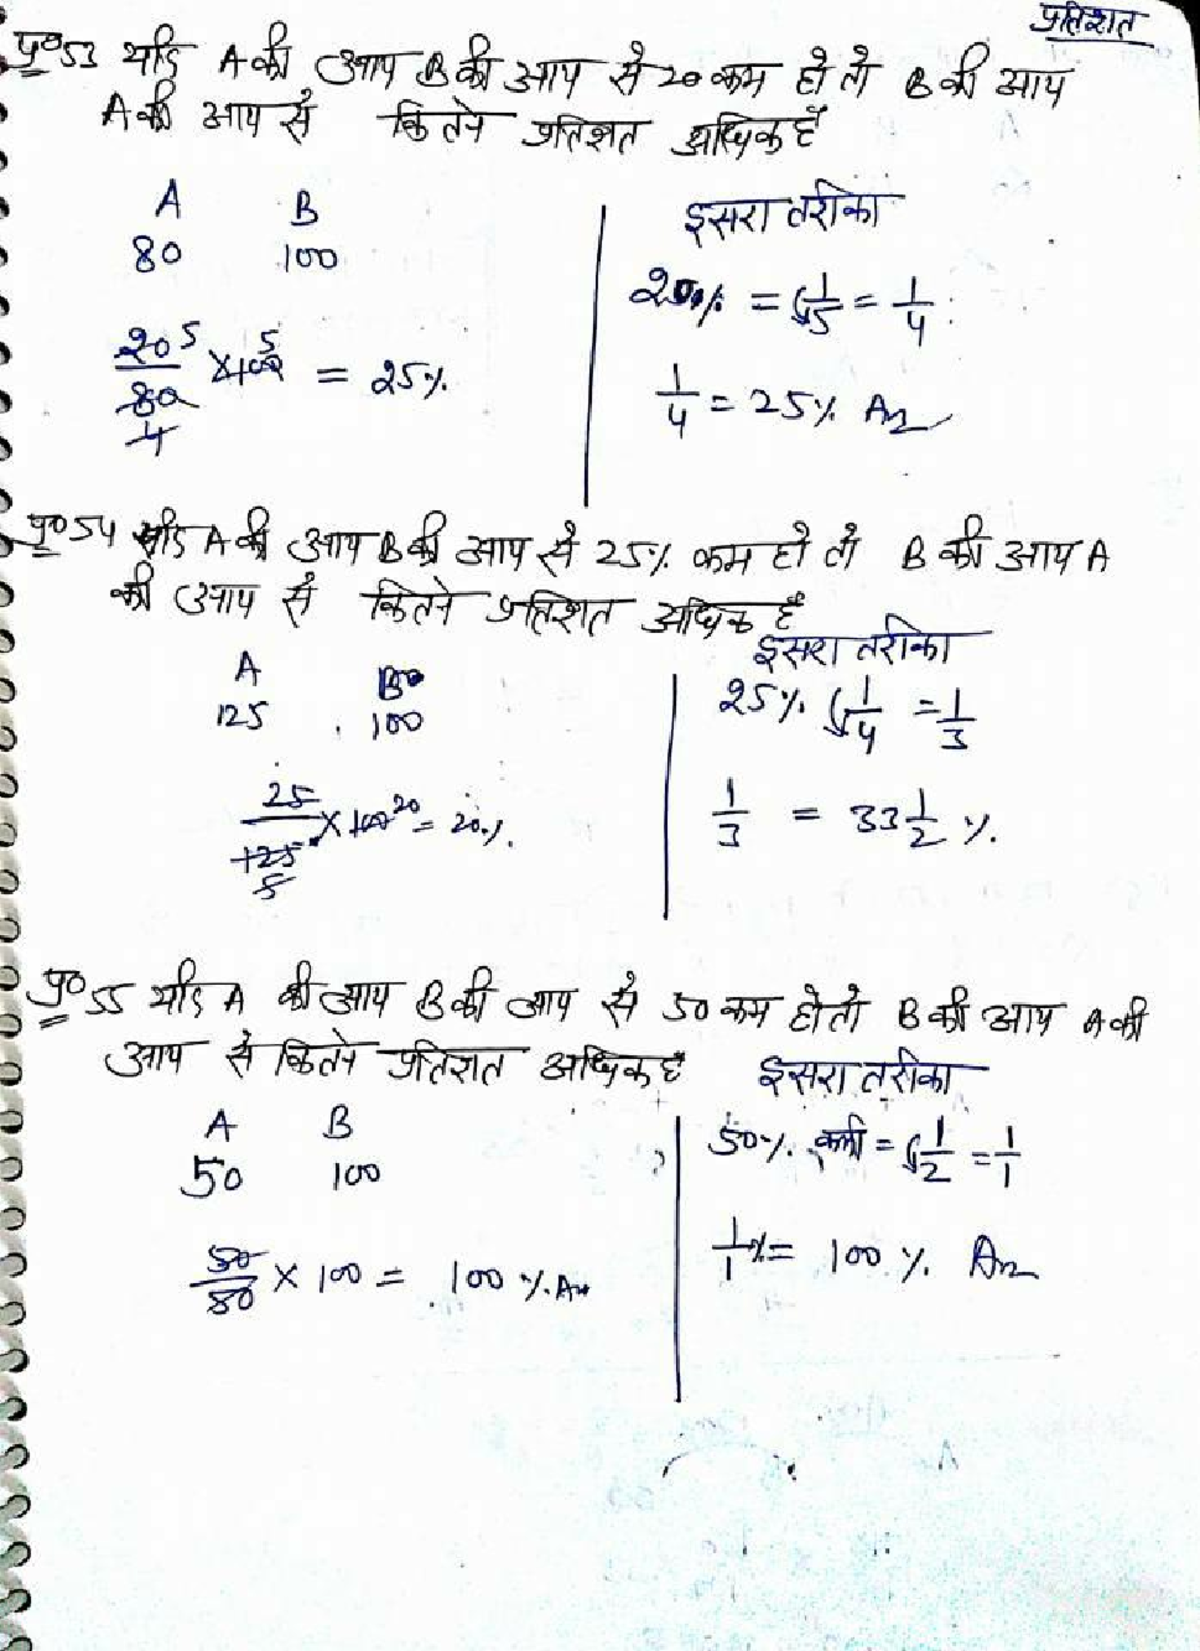 प्रतिशत
प्र०53 यदि A की आय B की आय से 20 कम हो तो B की आय
A की आय से कितने प्रतिशत अधिक है
A B
80 100
20 5 / 80 4 × 100 5 = 25%
इसरा तरीका
20% = 1/5 = 1/4
1/4 = 25% Ans
प्र०54 यदि A की आय B की आय से 25% कम हो तो B की आय A
की आय से कितने प्रतिशत अधिक है
A B
125 100
25 / 125 5 × 100 20 = 20%.
इसरा तरीका
25% 1/4 = 1/3
1/3 = 33 1/2 %.
प्र०55 यदि A की आय B की आय से 50 कम हो तो B की आय A की
आय से कितने प्रतिशत अधिक है
A B
50 100
50/80 × 100 = 100 %. Ans
इसरा तरीका
50%. कमी = 1/2 = 1/1
1/1 % = 100 %. Ans